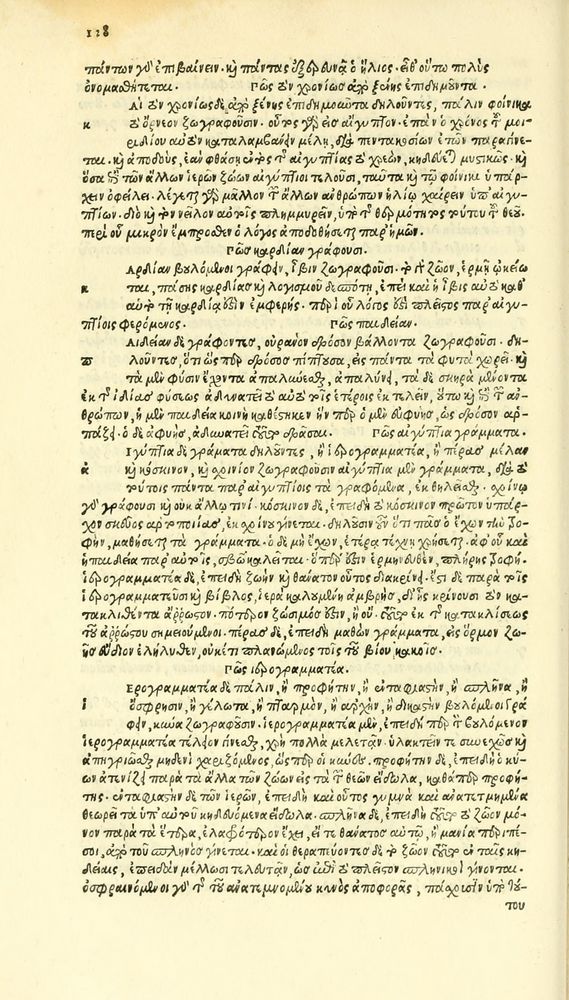 128
πάντων γὰρ ἐπιβαίνειν. καὶ πάντας ἐξερευνᾷ ὁ ἥλιος. εἶθ' οὕτω πολὺς
ὀνομασθήσεται. Πῶς τὸν χρονίως ἀπὸ ξένης ἐπιδημοῦντα.
Αὶ τὸν χρονίως δὲ ἀπὸ ξένης ἐπιδημοῦντα δηλοῦντες, πάλιν φοίνικα
κ τὸ ὄρνεον ζωγραφοῦσιν. οὗτος γὰρ εἰς αἴγυπτον. ἐπὰν ὁ χρόνος τοῦ μοι-
ριδίου αὐτὸν καταλαμβάνειν μέλλῃ, διὰ πεντακοσίων ἐτῶν παραγίνε-
ται. καὶ ἀποδοὺς, ἐὰν φθάσῃ ἐντὸς τῆς αἰγυπτίας τὸ χρεών, κηδεύεται μυστικῶς. καὶ
ὅσα ἐπὶ τῶν ἄλλων ἱερῶν ζώων αἰγύπτιοι τελοῦσι, ταῦτα καὶ τῷ φοίνικι ὑπάρ-
χειν ὀφείλει. λέγεται γὰρ μᾶλλον τῶν ἄλλων ἀνθρώπων ἡλίῳ χαίρειν ὑπ' αἰγυ-
πτίων. διὸ καὶ τὸν νεῖλον αὐτοῖς πλημμυρεῖν, ὑπὸ τῆς θερμότητος τούτου τοῦ θεοῦ.
περὶ οὗ μικρὸν ἔμπροσθεν ὁ λόγος ἀποδοθήσεται παρ' ἡμῶν.
Πῶς καρδίαν γράφουσι.
Αρδίαν βουλόμενοι γράφειν, ἶβιν ζωγραφοῦσι. τὸ γὰρ ζῶον, ἑρμῇ ᾠκείω
κ ται, πάσης καρδίας καὶ λογισμοῦ δεσπότῃ, ἐπεὶ καὶ ἡ ἶβις αὐτὸ καθ'
αὑτὸ τῇ καρδίᾳ ἐστὶν ἐμφερής. περὶ οὗ λόγος ἐστὶ πλεῖστος παρ' αἰγυ-
πτίοις φερόμενος. Πῶς παιδείαν.
Αιδείαν δὲ γράφοντες, οὐρανὸν δρόσον βάλλοντα ζωγραφοῦσι. δη-
π λοῦντες, ὅτι ὥσπερ δρόσος πίπτουσα, εἰς πάντα τὰ φυτὰ χωρεῖ. καὶ
τὰ μὲν φύσιν ἔχοντα ἁπαλύνεσθαι, ἁπαλύνει, τὰ δὲ σκληρὰ μένοντα
ἐκ τῆς ἰδίας φύσεως ἀδυνατεῖ τὸ αὐτὸ τοῖς ἑτέροις ἐκτελεῖν, οὕτω καὶ ἐπὶ τῶν ἀν-
θρώπων, ἡ μὲν παιδεία κοινὴ καθέστηκεν ἣν περ ὁ μὲν εὐφυὴς, ὡς δρόσον ἁρ-
πάζει. ὁ δὲ ἀφυὴς, ἀδυνατεῖ τοῦτο δρᾶσαι. Πῶς αἰγύπτια γράμματα.
Ιγύπτια δὲ γράματα δηλοῦντες, ἢ ἱερογραμματέα, ἢ πέρας μέλαν
α καὶ κόσκινον, καὶ σχοινίον ζωγραφοῦσιν αἰγύπτια μὲν γράμματα, διὰ τὸ
τούτοις πάντα παρ' αἰγυπτίοις τὰ γραφόμενα, ἐκτελεῖσθαι. σχοίνῳ
γὰρ γράφουσι καὶ οὐκ ἄλλῳ τινί. κόσκινον δὲ, ἐπειδὴ τὸ κόσκινον πρῶτον ὑπάρ-
χον σκεῦος ἀρτοποιίας, ἐκ σχοίνου γίνεται. δηλοῦσιν οὖν ὅτι πᾶς ὁ ἔχων τὴν τρο-
φὴν, μαθήσεται τὰ γράμματα. ὁ δὲ μὴ ἔχων, ἑτέρᾳ τέχνῃ χρήσεται. ἀφ' οὗ καὶ
ἡ παιδεία παρ' αὐτοῖς, σβὼ καλεῖται. ὅπερ ἐστὶν ἑρμηνευθὲν, πλήρης τροφή.
ἱερογραμματέα δὲ, ἐπειδὴ ζωὴν καὶ θάνατον οὗτος διακρίνει. ἔστι δὲ παρὰ τοῖς
ἱερογραμματεῦσι καὶ βίβλος, ἱερὰ καλουμένη ἀμβρὴς, δι' ἧς κρίνουσι τὸν κα-
τακλιθέντα ἄῤῥωστον. πότερον ζώσιμός ἐστιν, ἢ οὔ. τοῦτο ἐκ τῆς κατακλίσεως
τοῦ ἀῤῥώστου σημειούμενοι. πέρας δὲ, ἐπειδὴ μαθὼν γράμματα, εἰς ὅρμον ζω-
ῆς εὔδιον ἐλήλυθεν, οὐκέτι πλανώμενος τοῖς τοῦ βίου κακοῖς.
Πῶς ἱερογραμματέα.
Ερογραμματέα δὲ πάλιν, ἢ προφήτην, ἢ ἐνταφιαστὴν, ἢ σπλῆνα, ἢ
ι ὄσφρησιν, ἢ γέλωτα, ἢ πταρμὸν, ἢ ἀρχὴν, ἢ δικαστὴν βουλόμενοι γρά
φειν, κύνα ζωγραφοῦσιν. ἱερογραμματέα μὲν, ἐπειδὴ περ τὸν βουλόμενον
ἱερογραμματέα τέλειον γίνεσθαι, χρὴ πολλὰ μελετᾶν. ὑλακτεῖν τε συνεχῶς καὶ
ἀπηγριῶσθαι μηδενὶ χαριζόμενος, ὥσπερ οἱ κύνες. προφήτην δὲ, ἐπειδὴ ὁ κύ-
ων ἀτενίζει παρὰ τὰ ἄλλα τῶν ζώων εἰς τὰ τῶν θεῶν εἴδωλα, καθάπερ προφή-
της. ἐνταφιαστὴν δὲ τῶν ἱερῶν, ἐπειδὴ καὶ οὗτος γυμνὰ καὶ ἀνατετμημένα
θεωρεῖ τὰ ὑπ' αὐτοῦ κηδευόμενα εἴδωλα. σπλῆνα δὲ, ἐπειδὴ τοῦτο τὸ ζῶον μό-
νον παρὰ τὰ ἕτερα, ἐλαφρότερον ἔχει, εἴτε θάνατος αὐτῷ, ἢ μανία περιπέ-
σοι, ἀπὸ τοῦ σπληνὸς γίνεται. καὶ οἱ θεραπεύοντες δὲ τὸ ζῶον τοῦτο ἐν ταῖς κη-
δείαις, ἐπειδὰν μέλλωσι τελευτᾶν, ὡς ἐπὶ τὸ πλεῖστον σπληνικοὶ γίνονται.
ὀσφραινόμενοι γὰρ τῆς τοῦ ἀνατεμνομένου κυνὸς ἀποφορᾶς, πάσχουσιν ὑπὸ τού-
του